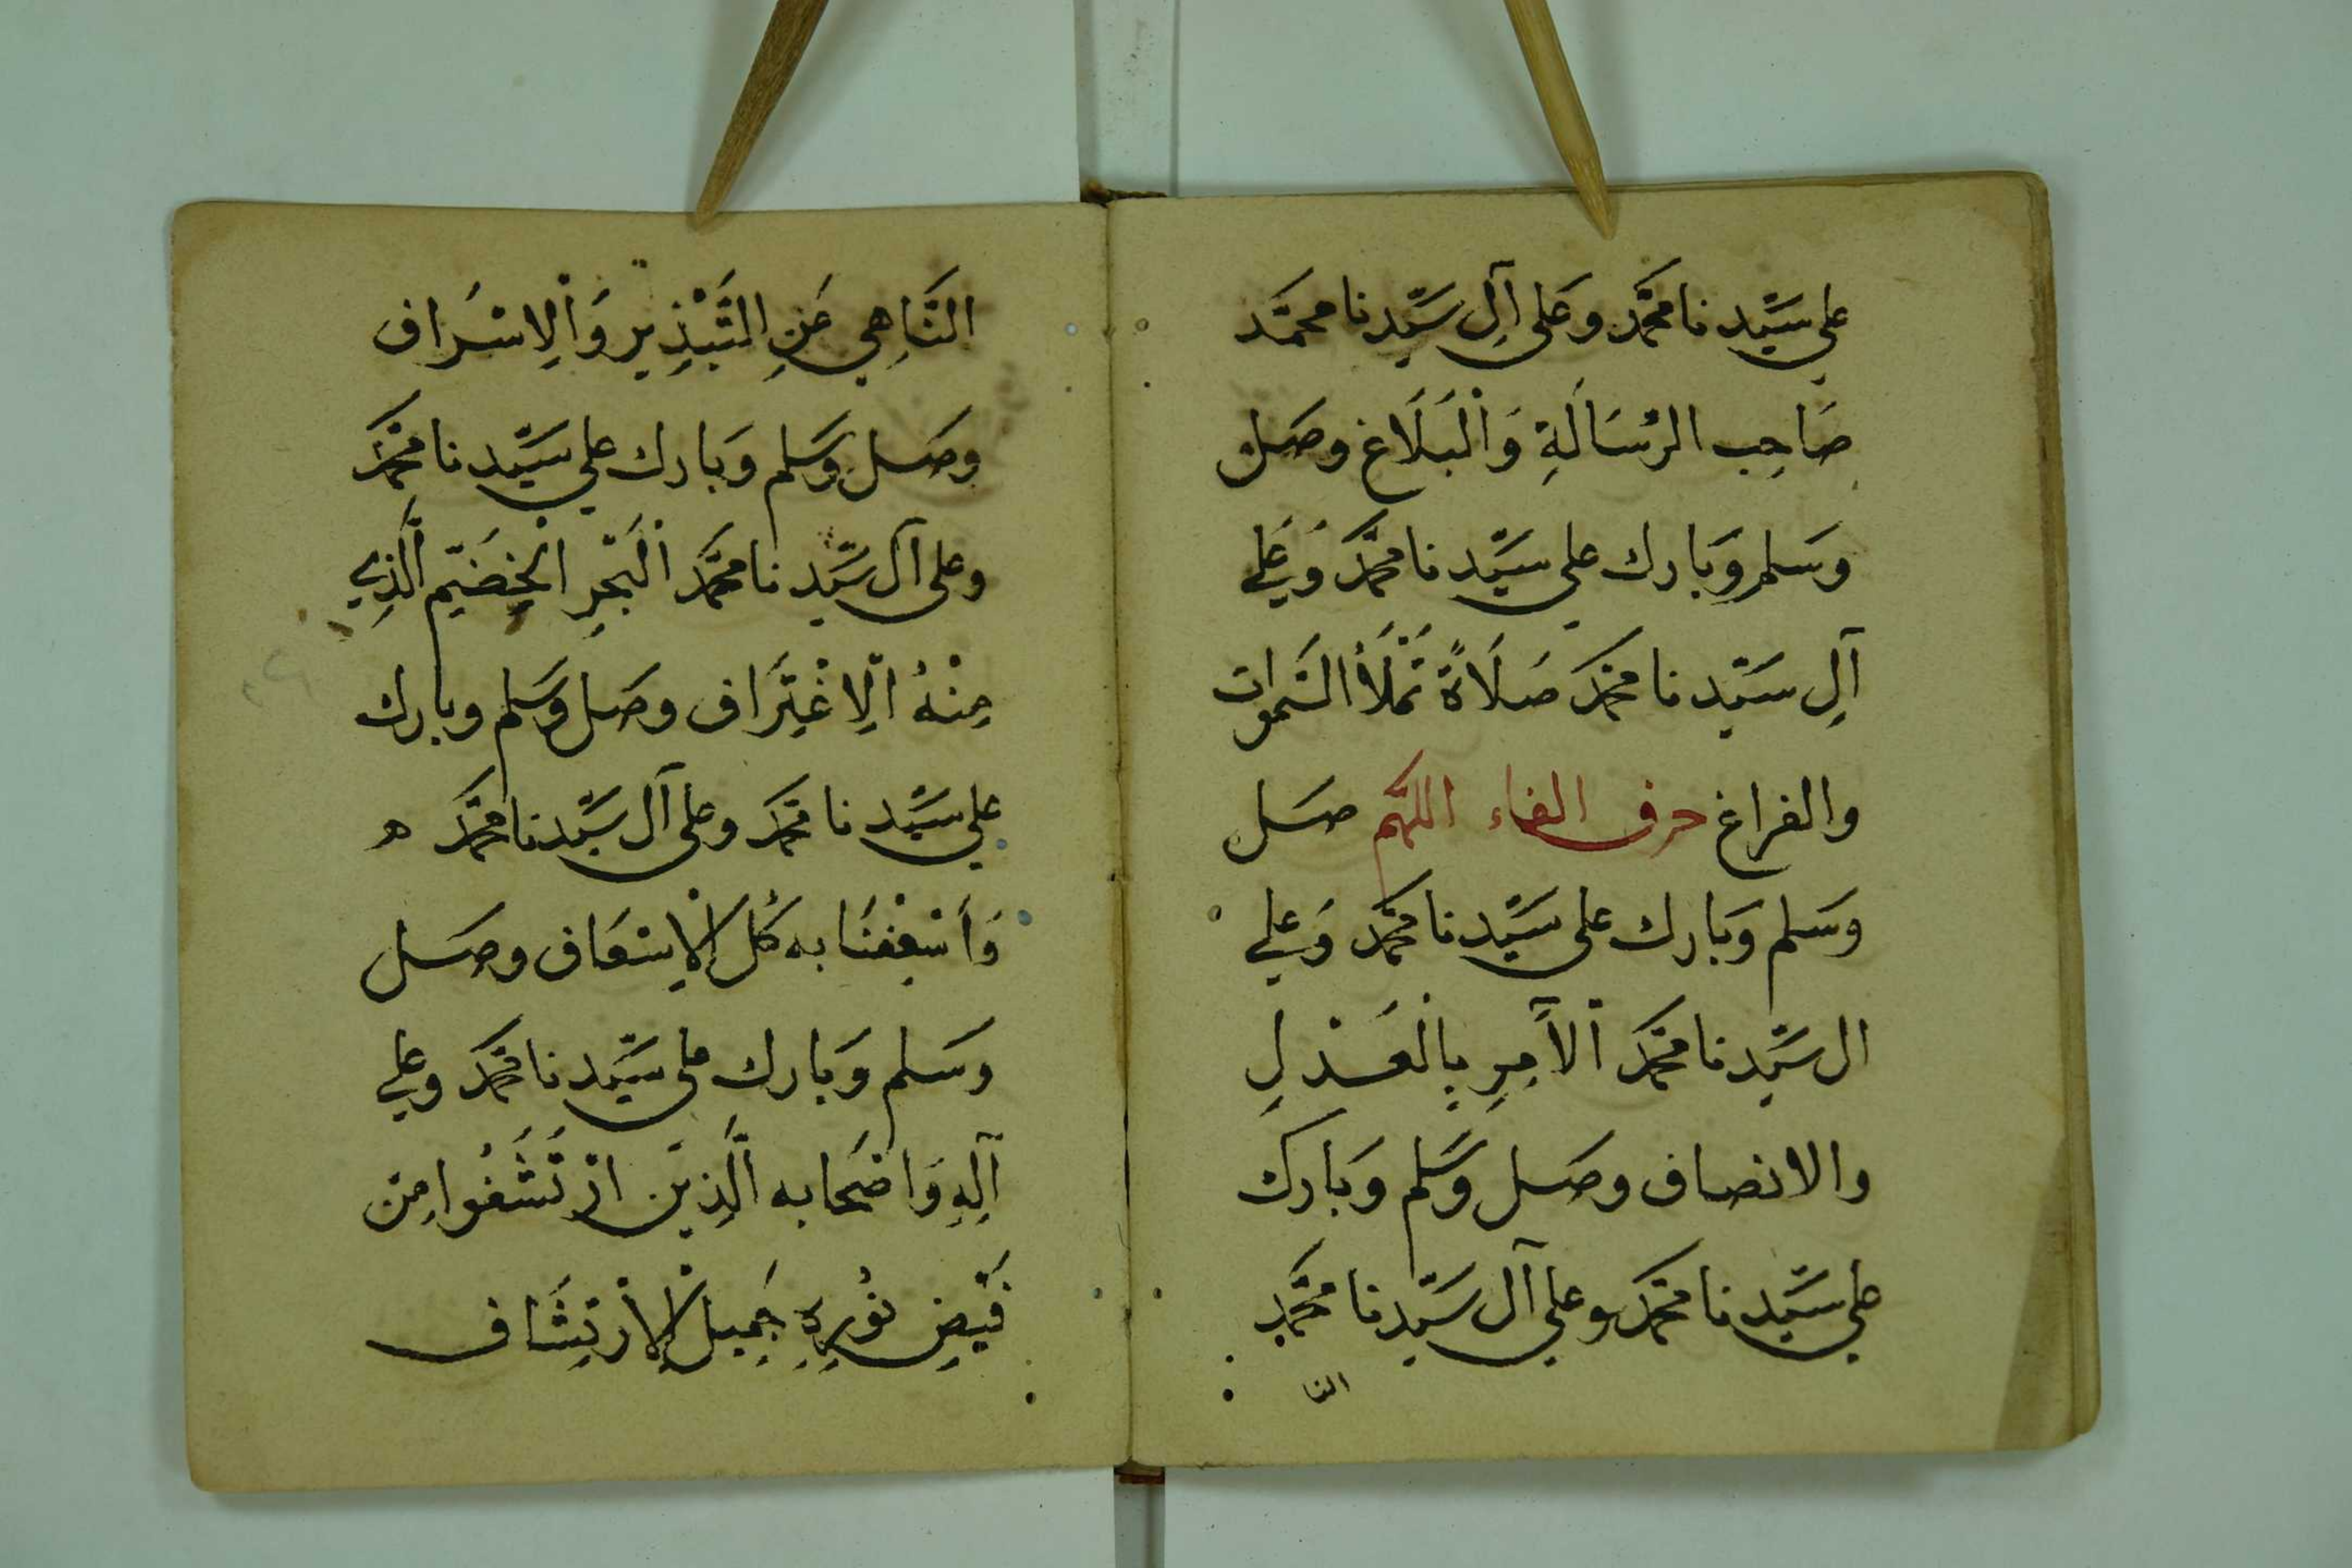 على سَيِّدنا محَمَّد وَعَلى آلِ سَيِّدنا محمَّد
صَاحِب الرِّسَالَةِ وَالْبَلَاغ وصَل
وَسَلم وَبَارك على سَيِّدنا محَمَّد وَعَلى
آلِ سَيِّدنا محَمَّد صَلَاةً تَمْلَأُ السَّموات
والفراغ حرف الفاء اللهم صَل
وَسَلم وَبَارك على سَيِّدنا محَمَّد وَعلى
ال سَيِّدنا محَمَّد الْآمِرِ بِالْعَدْلِ
والانصاف وصَل وَسَلم وَبَارك
على سَيِّدنا محَمَّد وعلى آل سَيِّدنا محَمَّدٍ
النا
النَّاهِي عَنِ التَّبْذِيرِ وَالْاِسْرَاف
وصَل وَسَلم وَبَارك على سَيِّدنا محَمَّد
وعلى آل سَيِّدنا محَمَّد الْبَحْرِ الْخِضَمِّ الَّذِي
مِنْهُ الْاِغْتِرَاف وصَل وَسَلم وبارك
على سَيِّدنا محَمَّد وعلى آل سَيِّدنا محَمَّد ه
وَأَسْعِفْنَا به كُل الْاِسْعَاف وصَل
وَسَلم وَبَارك على سَيِّدنا محَمَّد وَعلى
آلِهِ وَاَصْحَابه الَّذِينَ ارْتَشَفُوا مِنْ
فَيْضِ نُورِهِ جَمِيل الْاِرْتِشَاف